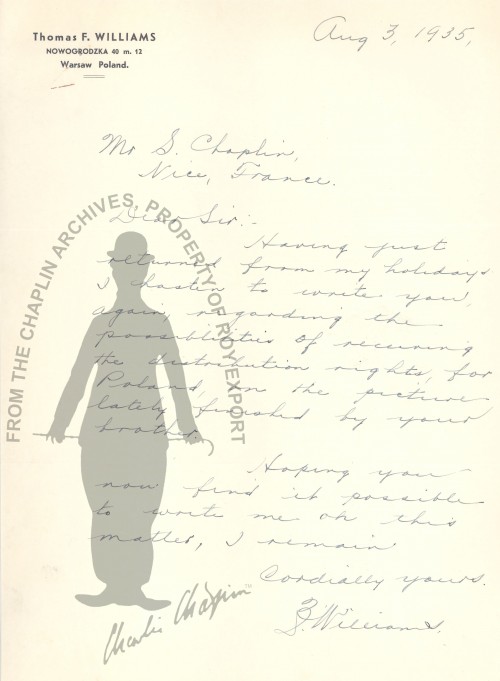 Thomas F. WILLIAMS
NOWOGRODZKA 40 m. 12
Warsaw Poland.
Aug 3, 1935,
Mr S. Chaplin,
Nice, France.
Dear Sir:-
Having just
returned from my holidays
I hasten to write you,
again, regarding the
possiblities of receiving
the distribution rights, for
Poland, on the picture
lately finished by your
brother.
Hoping you
now find it possible
to write me on this
matter, I remain
Cordially yours.
Williams.
FROM THE CHAPLIN ARCHIVES, PROPERTY OF ROY EXPORT
Charlie Chaplin™